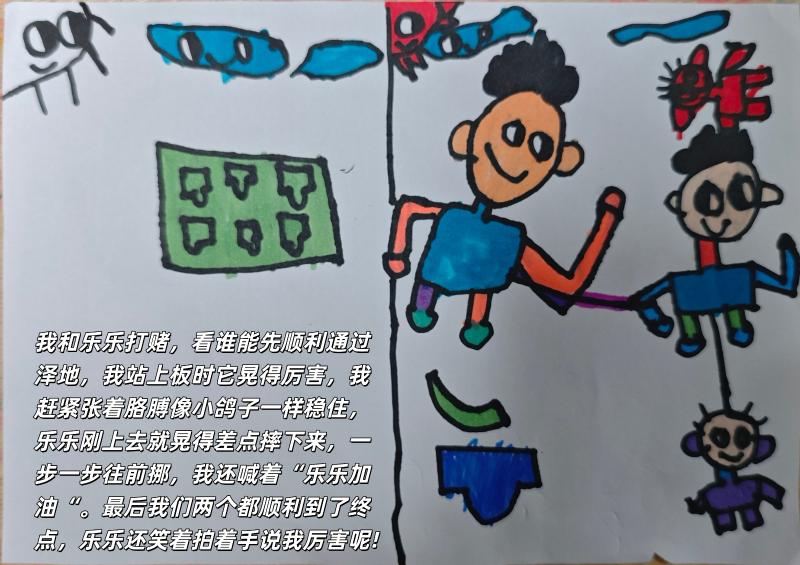 我和乐乐打赌，看谁能先顺利通过
泽地，我站上板时它晃得厉害，我
赶紧张着胳膊像小鸽子一样稳住，
乐乐刚上去就晃得差点摔下来，一
步一步往前挪，我还喊着“乐乐加
油“。最后我们两个都顺利到了终
点，乐乐还笑着拍着手说我厉害呢!